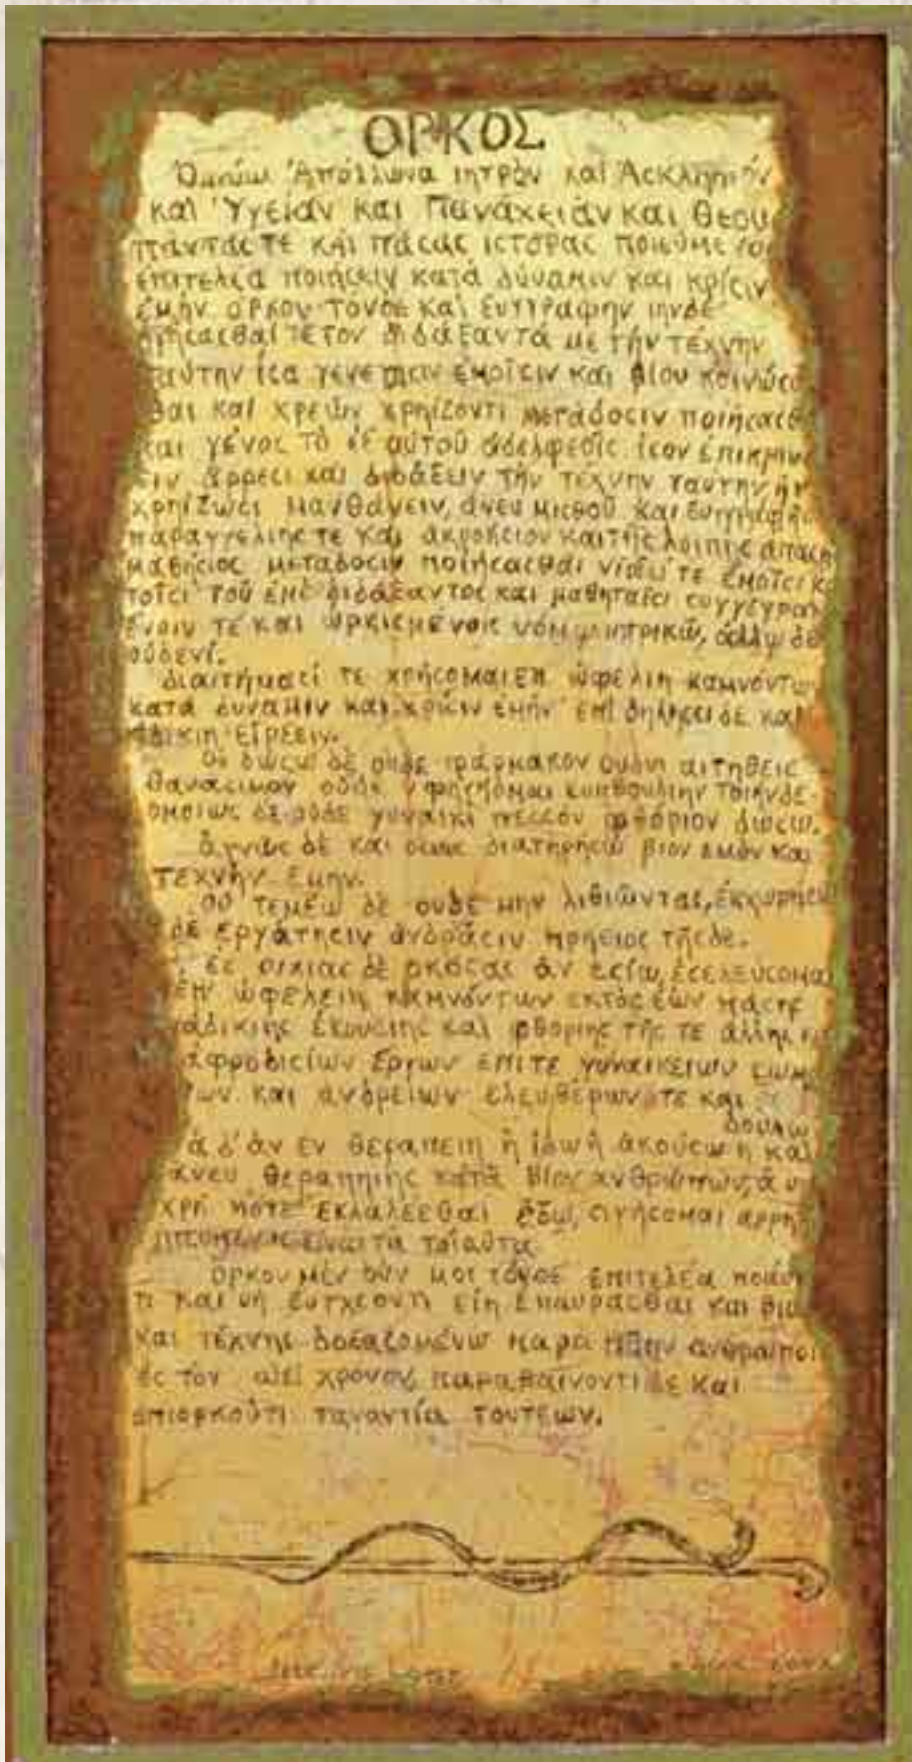 ΟΡΚΟΣ
Ὄμνυμι Ἀπόλλωνα ιητρὸν καὶ Ἀσκληπιόν
καὶ Ὑγείαν και Πανάκειαν και θεου
πάντας τε και πάσας ιστορας ποιεύμενος
επιτελέα ποιήσειν κατά δύναμιν και κρίσιν
ἐμήν ορκον τόνδε καὶ ξυγγραφήν τήνδε
ηγήσασθαί τε τον διδάξαντά με τήν τέχνην
ταύτην ισα γενέτησιν ἐμοῖσιν και βίου κοινώσα
θαι καὶ χρεών χρηίζοντι μετάδοσιν ποιήσασθ
και γένος τὸ ἐξ αὐτοῦ ἀδελφεοῖς ίσον ἐπικρινέ
ειν άρρεσι και διδάξειν τήν τέχνην ταύτην ήν
χρηίζωσι μανθάνειν, άνευ μισθοῦ και ξυγγραφῆς
παραγγελίης τε και ακροήσιος και τῆς λοιπῆς απάσης
μαθήσιος μετάδοσιν ποιήσασθαι υἱοῖσί τε ἐμοῖσι κ
τοῖσι τοῦ ἐμέ διδάξαντος και μαθηταῖσι συγγεγραμ
ένοισν τέ και ὡρκισμένοις νόμῳ ιητρικῶ, άλλῳ δέ
οὐδενί.
διαιτήμασί τε χρήσομαι επ ὠφελίη καμνόντων
κατά δύναμιν και κρίσιν εμήν επί δηλήσει δε και
αδικίη εἴρξειν.
Οὐ δώσω δέ ουδέ φάρμακον ουδενί αιτηθείς
θανάσιμον ουδέ υφηγήσομαι ξυμβουλίην τοιήνδε
ομοίως δέ ουδέ γυναικί πεσσόν φθόριον δώσω.
ἁγνῶς δέ και οσίως διατηρήσω βίον εμόν και
τέχνην εμήν.
οὐ τεμέω δέ ουδέ μην λιθιῶντας, ἐκχωρήσω
δέ εργάτησιν ἀνδράσιν πρήξιος τῆσδε.
ἐς οικίας δέ οκόσας άν εσίω, εσελεύσομαι
επ ὠφελείη καμνόντων εκτός ἐών πάσης
αδικίης ἑκουσίης καί φθορίης τῆς τε άλλης
αφροδισίων έργων επί τε γυναικείων σωμ
των και ανδρείων ελευθέρων τε και
δούλω
ἁ δ' άν εν θεραπείη ή ίδω ή ακούσω ή και
άνευ θεραπηίης κατά βίον ανθρώπων, ά
χρή ποτε εκλαλέεσθαι έξω, σιγήσομαι άρρη
είναι τα τοιαύτα
Όρκον μέν οὖν μοι τόνδε επιτελέα ποιέον
τι και μή ξυγχέοντι είη επαύρασθαι και βίου
και τέχνης δοξαζομένω παρά πᾶσιν ανθρώποις
ές τον αἰεί χρόνον, παραβαίνοντι δε και
επιορκοῦτι ταναντία τουτέων.